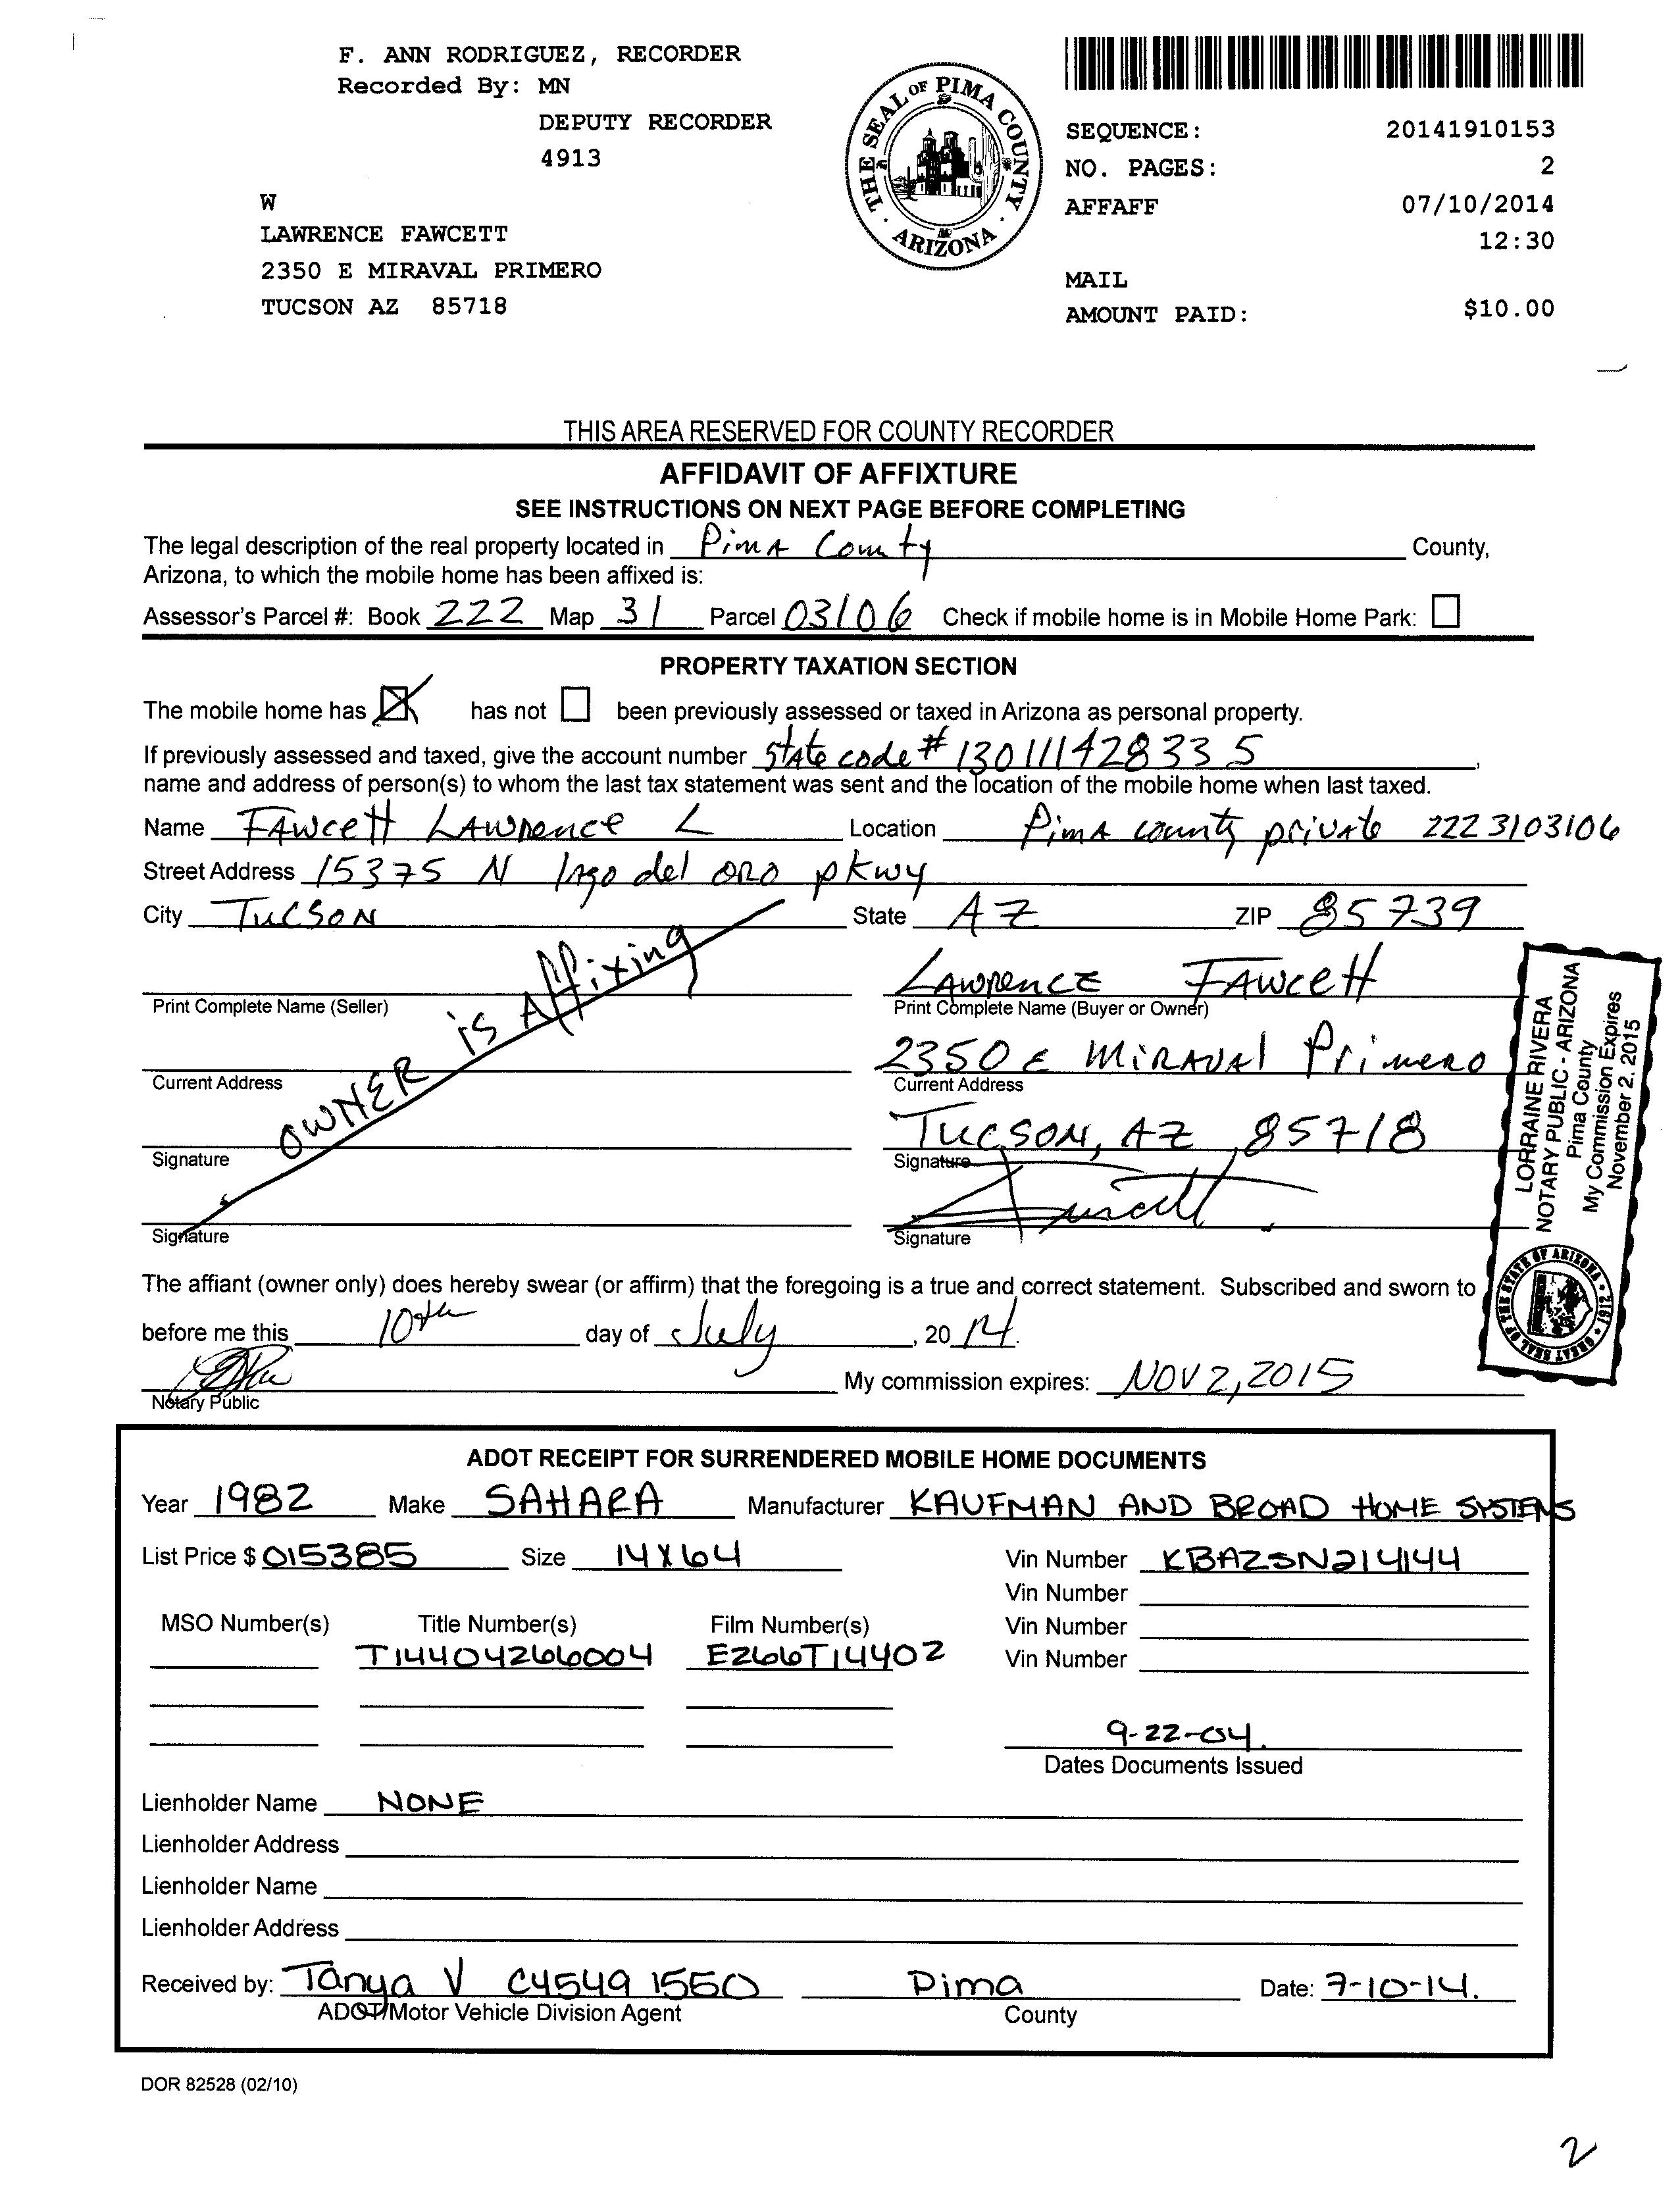 F. ANN RODRIGUEZ, RECORDER
Recorded By: MN
DEPUTY RECORDER
4913
W
LAWRENCE FAWCETT
2350 E MIRAVAL PRIMERO
TUCSON AZ 85718
THE SEAL OF PIMA COUNTY
ARIZONA
SEQUENCE: 20141910153
NO. PAGES: 2
AFFAFF 07/10/2014
12:30
MAIL
AMOUNT PAID: $10.00
THIS AREA RESERVED FOR COUNTY RECORDER
AFFIDAVIT OF AFFIXTURE
SEE INSTRUCTIONS ON NEXT PAGE BEFORE COMPLETING
The legal description of the real property located in Pima County County,
Arizona, to which the mobile home has been affixed is:
Assessor's Parcel #: Book 222 Map 31 Parcel 03106 Check if mobile home is in Mobile Home Park:
PROPERTY TAXATION SECTION
The mobile home has has not been previously assessed or taxed in Arizona as personal property.
If previously assessed and taxed, give the account number State code # 130111428335,
name and address of person(s) to whom the last tax statement was sent and the location of the mobile home when last taxed.
Name FAWCETT LAWRENCE L Location Pima county private 222 3103106
Street Address 15375 N lago del ORO pkwy
City TUCSON State AZ ZIP 85739
OWNER is Affixing
Print Complete Name (Seller)
Current Address
Signature
Signature
LAWRENCE FAWCETT
Print Complete Name (Buyer or Owner)
2350 E MIRAVAL Primero
Current Address
TUCSON, AZ, 85718
Signature
Signature
LORRAINE RIVERA
NOTARY PUBLIC - ARIZONA
Pima County
My Commission Expires
November 2, 2015
GREAT SEAL OF THE STATE OF ARIZONA 1912
The affiant (owner only) does hereby swear (or affirm) that the foregoing is a true and correct statement. Subscribed and sworn to
before me this 10th day of July, 20 14.
My commission expires: NOV 2, 2015
Notary Public
ADOT RECEIPT FOR SURRENDERED MOBILE HOME DOCUMENTS
Year 1982 Make SAHARA Manufacturer KAUFMAN AND BROAD HOME SYSTEMS
List Price $ 015385 Size 14X64 Vin Number KBAZSN214144
Vin Number
MSO Number(s) Title Number(s) Film Number(s) Vin Number
T14404266004 E266T14402 Vin Number
9-22-04.
Dates Documents Issued
Lienholder Name NONE
Lienholder Address
Lienholder Name
Lienholder Address
Received by: Tanya V C4549 1550 Pima Date: 7-10-14.
ADOT/Motor Vehicle Division Agent County
DOR 82528 (02/10)
2